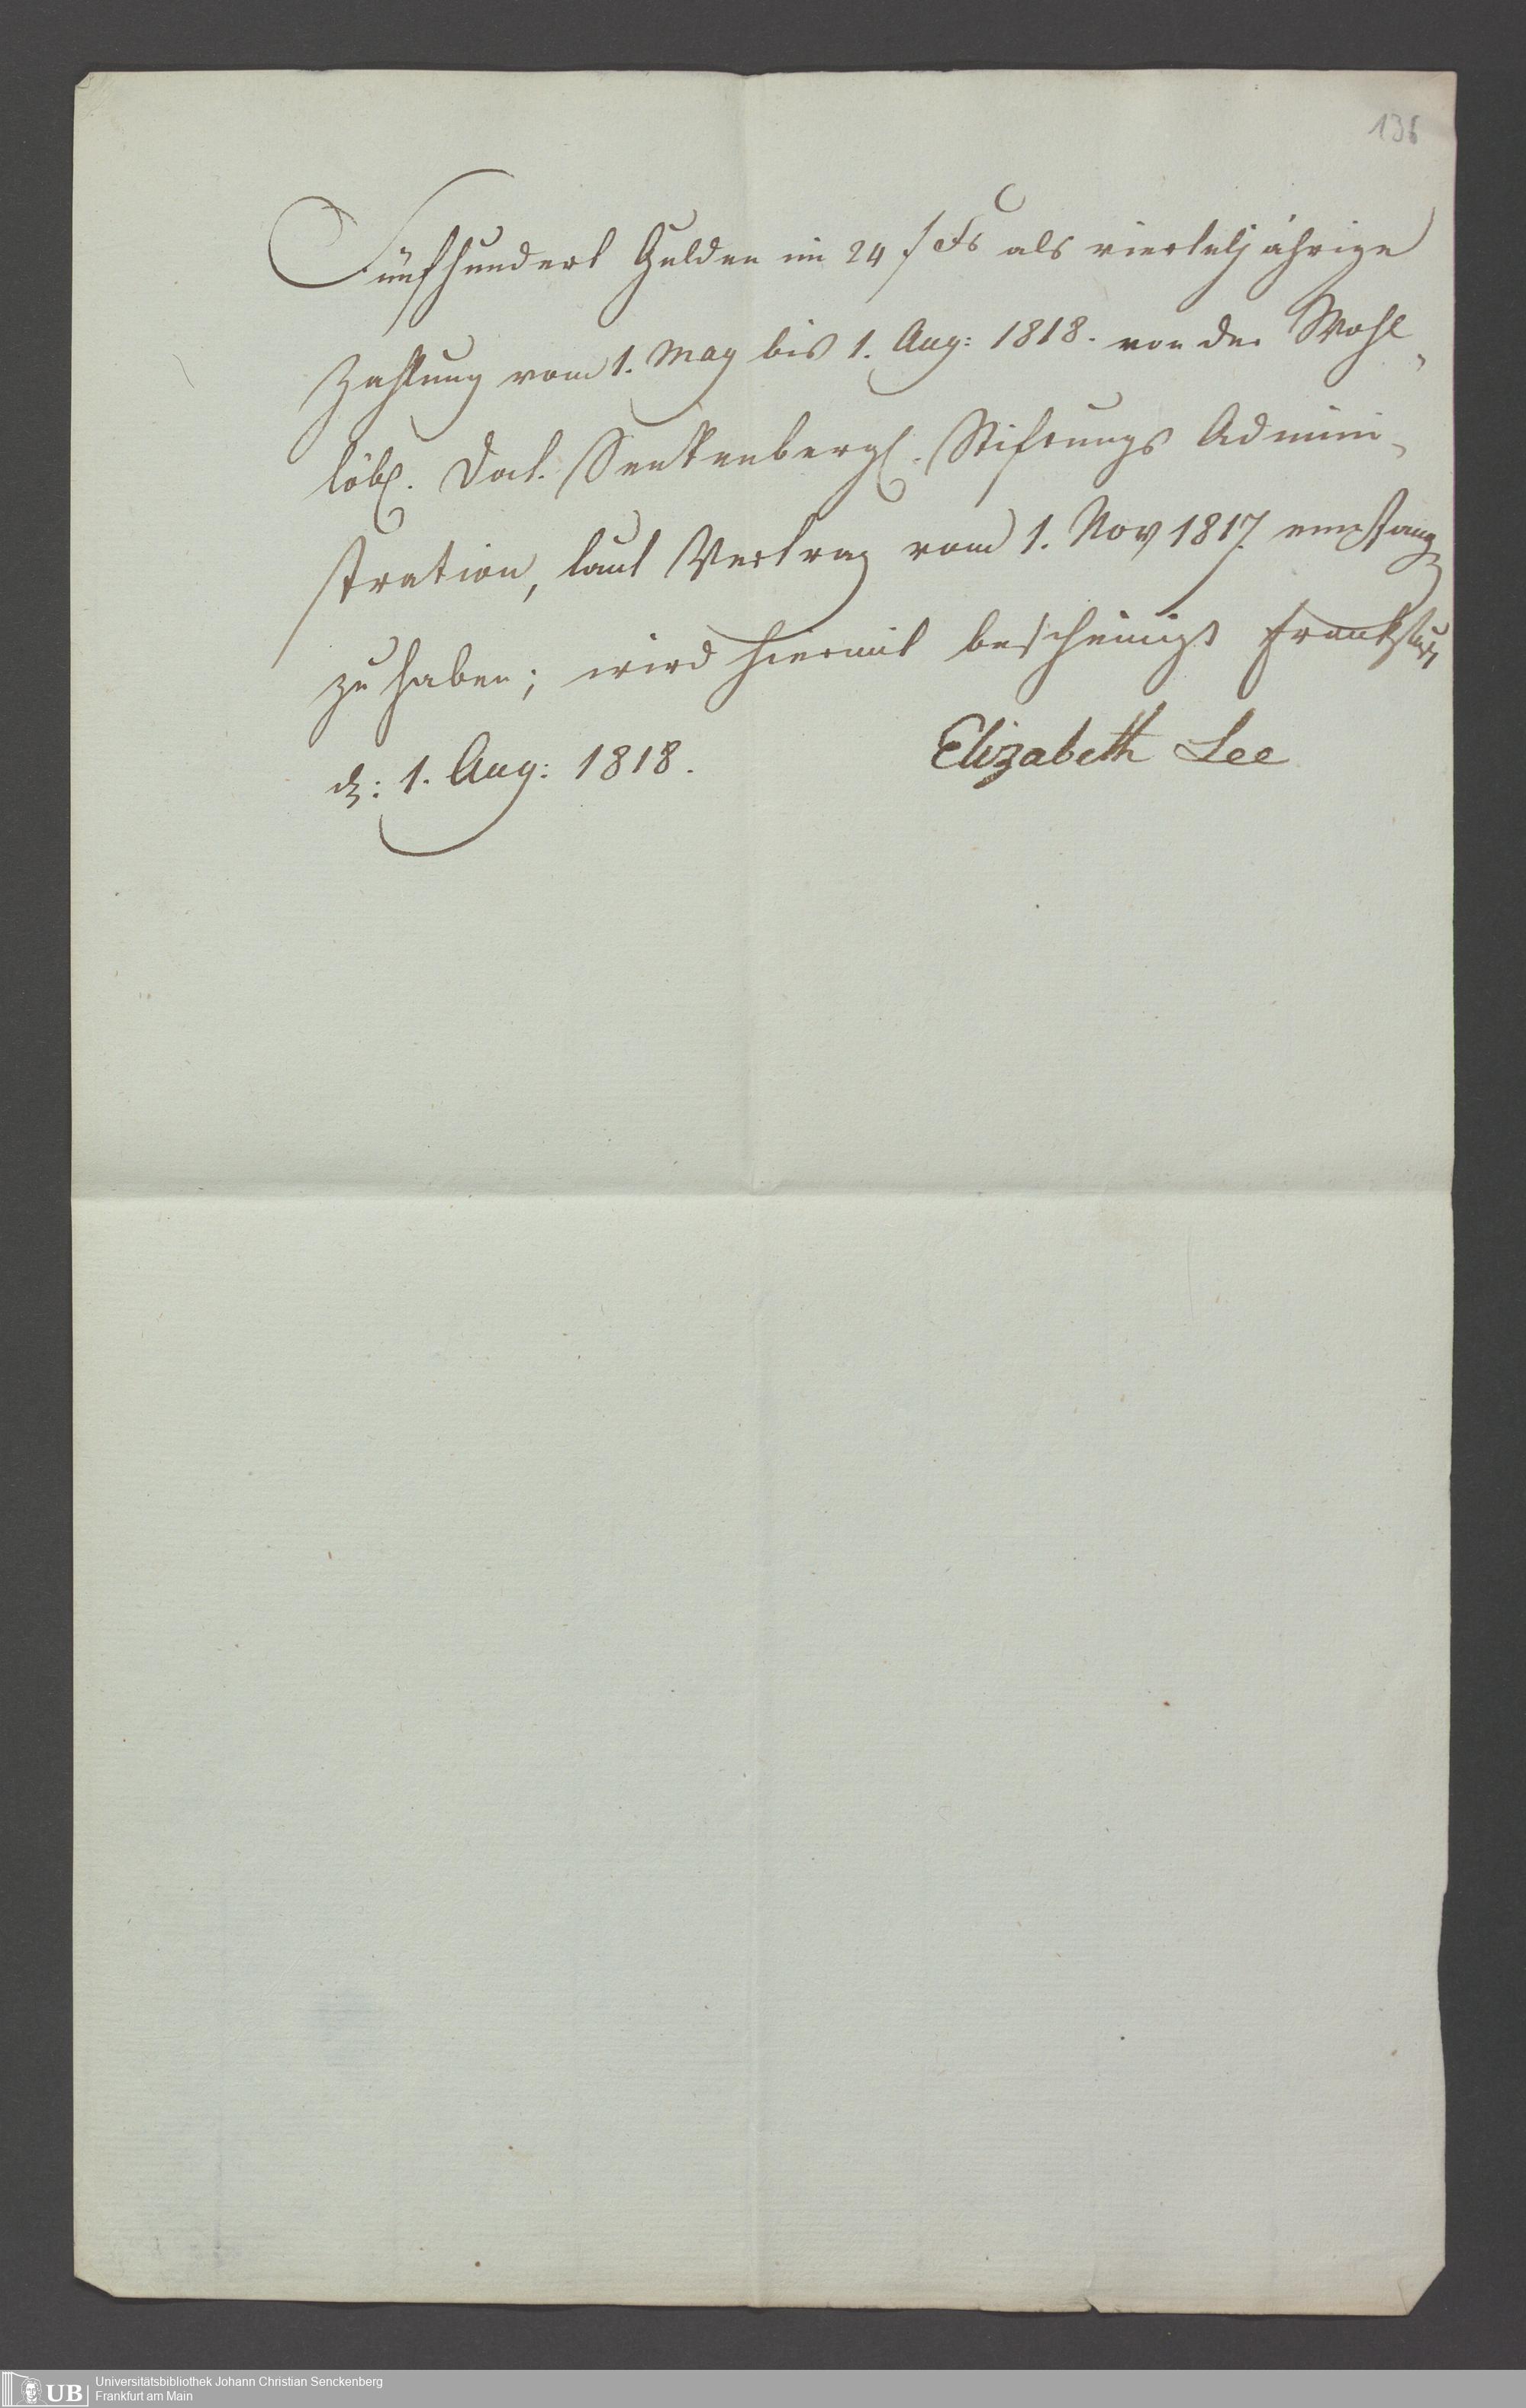 136
Fünfhundert Gulden im 24 f Fs als vierteljährige
Zahlung vom 1. May bis 1. Aug: 1818. von der Wohl-
löbl. Doct. Senkenbergl. Stiftungs Admini-
stration, laut Vertrag vom 1. Nov 1817. empfang
zu haben; wird hiermit bescheinigt Frankfurt
d: 1. Aug: 1818. Elizabeth Lee
UB Universitätsbibliothek Johann Christian Senckenberg
Frankfurt am Main